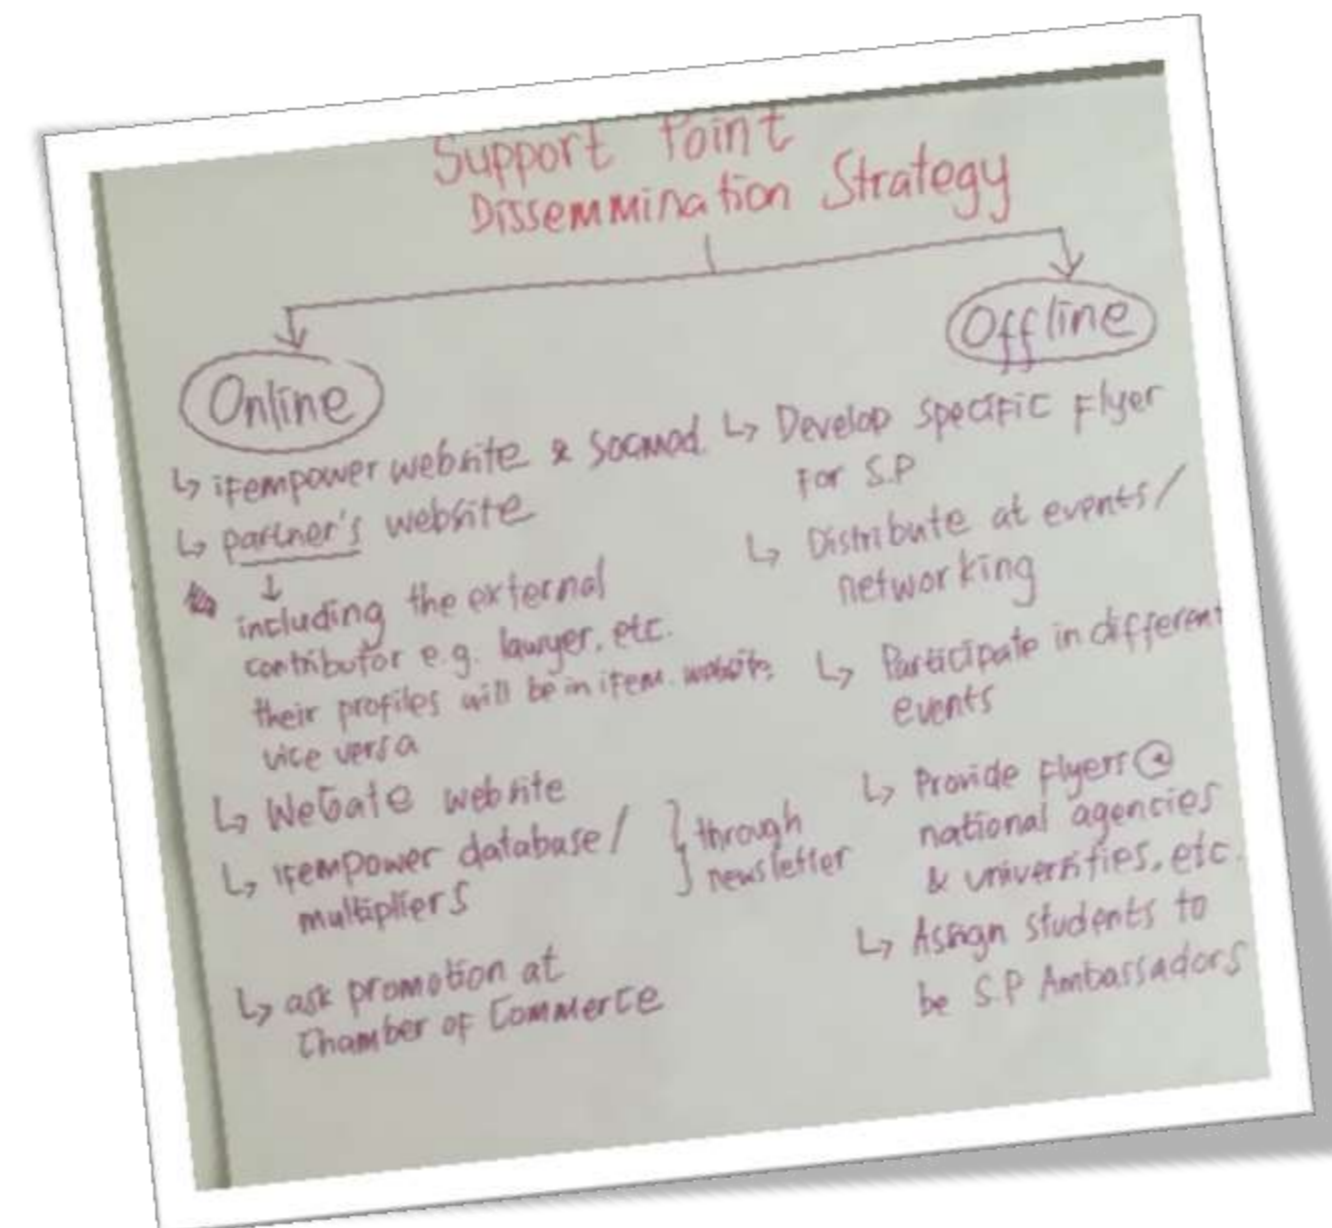 Support Point
Dissemmination Strategy
Online
↳ ifempower website & socmed.
↳ partner's website
↓
including the external
contributor e.g. lawyer, etc.
their profiles will be in ifem. website
vice versa
↳ WeGate website
↳ ifempower database/
multipliers
} through
newsletter
↳ ask promotion at
Chamber of Commerce
Offline
↳ Develop specific flyer
for S.P
↳ Distribute at events/
networking
↳ Participate in different
events
↳ Provide flyers @
national agencies
& universities, etc.
↳ Assign students to
be S.P Ambassadors